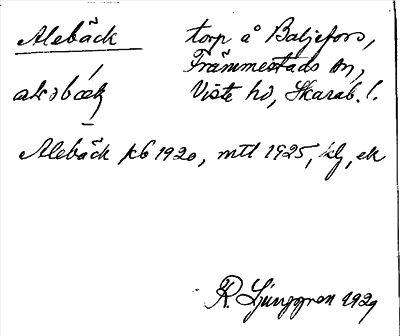 Alebäck torp å Baljefors,
Främmestads sn,
alɔbæk Viste hd, Skarab. l.
Alebäck kb 1920, mtl 1925, klj, ek
R. Ljunggren 1929